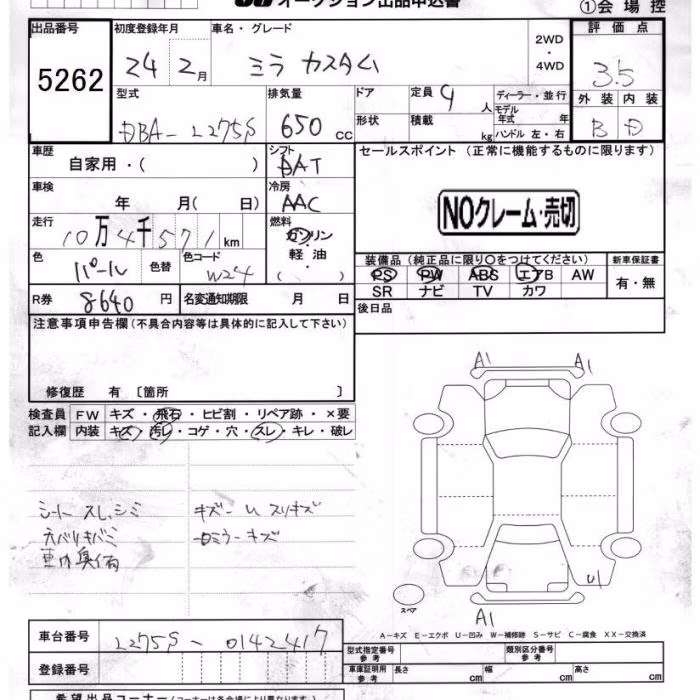 オークション出品申込書
①会場控
出品番号 初度登録年月 車名・グレード 評価点
5262 24 2月 ミラ カスタム 2WD・4WD 3.5
型式 排気量 ドア 定員 4人 ディーラー・並行 外装 内装
DBA-L275S 650cc 形状 積載 kg モデル年式 年 ハンドル 左・右 B D
車歴 シフト セールスポイント (正常に機能するものに限ります)
自家用・( ) DAT
車検 冷房
年 月( 日) AAC
NOクレーム・売切
走行 燃料
10万4千571km ガソリン
軽油
( )
色 色替 色コード 装備品 (純正品に限り○をつけてください) 新車保証書
パール W24 PS PW ABS エアB AW 有・無
SR ナビ TV カワ
R券 8640円 名変通知期限 月 日
後日品
注意事項申告欄(不具合内容等は具体的に記入して下さい)
修復歴 有 〔箇所 〕
A1 A1
検査員 FW キズ・飛石・ヒビ割・リペア跡・×要
記入欄 内装 キズ・汚レ・コゲ・穴・スレ・キレ・破レ
シート スレ、シミ キズー U スリキズ
天バリキバミ ミラーキズ
車内異臭
U1
スペア
A1
A-キズ E-エクボ U-凹み W-補修跡 S-サビ C-腐食 XX-交換済
車台番号 L275S-0142417
型式指定番号 参考 類別区分番号 参考
登録番号 車庫証明用 参考 長さ cm 幅 cm 高さ cm
希望出品コーナー(コーナーは各会場により異なります)